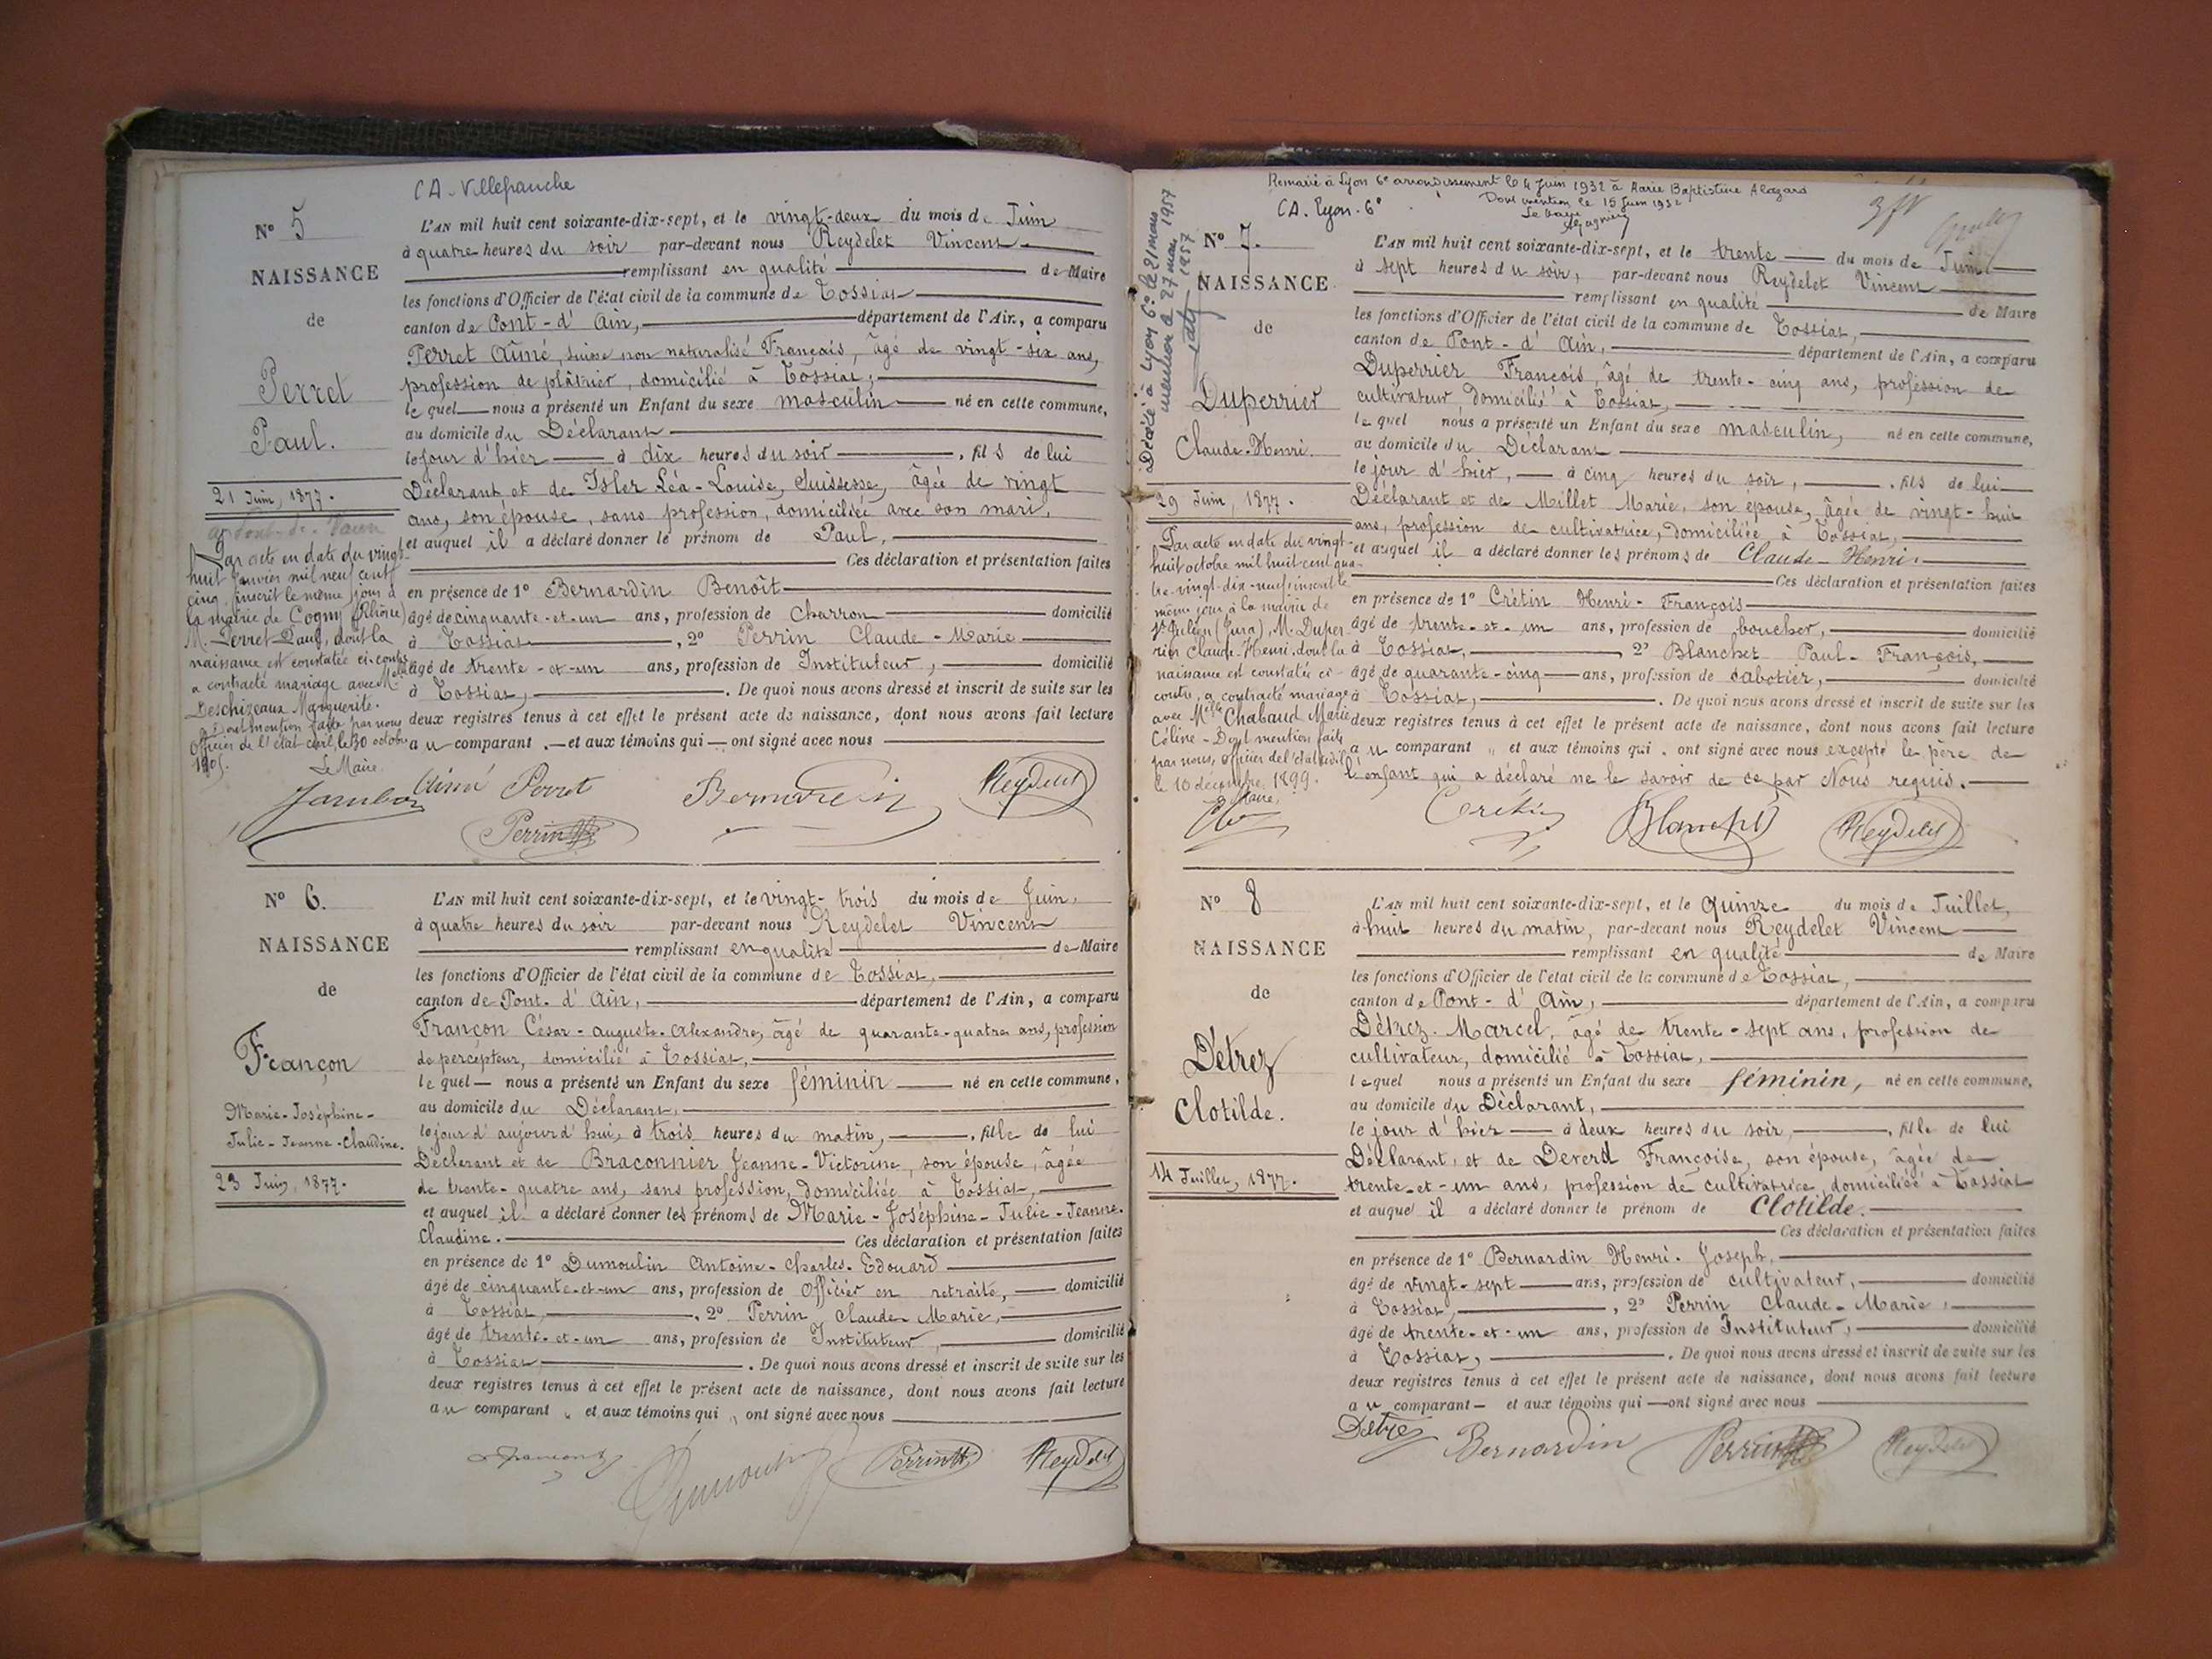 CA - Villefranche
N° 5
NAISSANCE
de
Perret
Paul.
21 Juin, 1877.
Par acte en date du vingt-
huit Janvier mil neuf cent
cinq, inscrit le même jour à
la mairie de Cogny (Rhône)
M. Perret Paul, dont la
naissance est constatée ci-contre
a contracté mariage avec Melle
Deschizeaux Marguerite.
dont mention faite par nous
officier de l'état civil, le 30 octobre
1905.
Le Maire.
L'AN mil huit cent soixante-dix-sept, et le vingt-deux du mois de Juin
à quatre heures du soir par-devant nous Reydelet Vincent
remplissant en qualité de Maire
les fonctions d'Officier de l'état civil de la commune de Tossiat
canton de Pont-d'Ain, département de l'Ain, a comparu
Perret Aimé, suisse non naturalisé Français, âgé de vingt-six ans,
profession de plâtrier, domicilié à Tossiat,
lequel nous a présenté un Enfant du sexe masculin né en cette commune,
au domicile du Déclarant
le jour d'hier à dix heures du soir, fils de lui
Déclarant et de Isler Léa-Louise, Suissesse, âgée de vingt
ans, son épouse, sans profession, domiciliée avec son mari,
et auquel il a déclaré donner le prénom de Paul,
Ces déclaration et présentation faites
en présence de 1° Bernardin Benoît
âgé de cinquante-et-un ans, profession de Charron domicilié
à Tossiat, 2° Perrin Claude-Marie
âgé de trente-et-un ans, profession de Instituteur, domicilié
à Tossiat, . De quoi nous avons dressé et inscrit de suite sur les
deux registres tenus à cet effet le présent acte de naissance, dont nous avons fait lecture
au comparant et aux témoins qui ont signé avec nous
Jambon Aimé Perret Bernardin Reydelet
Perrin
N° 6.
NAISSANCE
de
Françon
Marie-Joséphine-
Julie-Jeanne-Claudine.
23 Juin, 1877.
L'AN mil huit cent soixante-dix-sept, et le vingt-trois du mois de Juin,
à quatre heures du soir par-devant nous Reydelet Vincent
remplissant en qualité de Maire
les fonctions d'Officier de l'état civil de la commune de Tossiat,
canton de Pont-d'Ain, département de l'Ain, a comparu
Françon César-Auguste-Alexandre, âgé de quarante-quatre ans, profession
de percepteur, domicilié à Tossiat,
lequel nous a présenté un Enfant du sexe féminin né en cette commune,
au domicile du Déclarant,
le jour d'aujourd'hui, à trois heures du matin, fille de lui
Déclarant et de Braconnier Jeanne-Victorine, son épouse, âgée
de trente-quatre ans, sans profession, domiciliée à Tossiat,
et auquel il a déclaré donner les prénoms de Marie-Joséphine-Julie-Jeanne-
Claudine. Ces déclaration et présentation faites
en présence de 1° Dumoulin Antoine-Charles-Edouard
âgé de cinquante-et-un ans, profession de Officier en retraite, domicilié
à Tossiat, 2° Perrin Claude-Marie,
âgé de trente-et-un ans, profession de Instituteur, domicilié
à Tossiat . De quoi nous avons dressé et inscrit de suite sur les
deux registres tenus à cet effet le présent acte de naissance, dont nous avons fait lecture
au comparant " et aux témoins qui " ont signé avec nous
Dumoulin Perrin Reydelet
Remarié à Lyon 6e arrondissement le 4 Juin 1932 à Marie Baptistine Alazard
Dont mention le 15 Juin 1932
CA. Lyon-6e
Décédé à Lyon 6e le 21 mars 1957
mention le 27 mars 1957
N° 7.
NAISSANCE
de
Duperrier
Claude-Henri.
29 Juin, 1877.
Par acte en date du vingt-
huit octobre mil huit cent qua-
tre-vingt-dix-neuf, inscrit le
même jour à la mairie de
St Julien (Jura), M. Duper-
rier Claude-Henri, dont la
naissance est constatée ci-
contre, a contracté mariage
avec Melle Chabaud Marie
Céline - Dont mention faite
par nous, officier de l'état civil
le 10 décembre 1899.
Maire,
L'AN mil huit cent soixante-dix-sept, et le trente du mois de Juin
à sept heures du soir, par-devant nous Reydelet Vincent
remplissant en qualité de Maire
les fonctions d'Officier de l'état civil de la commune de Tossiat,
canton de Pont-d'Ain, département de l'Ain, a comparu
Duperrier François, âgé de trente-cinq ans, profession de
cultivateur, domicilié à Tossiat,
lequel nous a présenté un Enfant du sexe masculin, né en cette commune,
au domicile du Déclarant
le jour d'hier, à cinq heures du soir, fils de lui
Déclarant et de Millet Marie, son épouse, âgée de vingt-huit
ans, profession de cultivatrice, domiciliée à Tossiat,
et auquel il a déclaré donner les prénoms de Claude-Henri.
Ces déclaration et présentation faites
en présence de 1° Crétin Henri-François
âgé de trente-et-un ans, profession de boucher, domicilié
à Tossiat, 2° Blanchet Paul-François,
âgé de quarante-cinq ans, profession de sabotier, domicilié
à Tossiat, . De quoi nous avons dressé et inscrit de suite sur les
deux registres tenus à cet effet le présent acte de naissance, dont nous avons fait lecture
au comparant " et aux témoins qui . ont signé avec nous excepté le père de
l'enfant qui a déclaré ne le savoir de ce par Nous requis.
Crétin Blanchet Reydelet
N° 8
NAISSANCE
de
Détrez
Clotilde.
14 Juillet, 1877.
L'AN mil huit cent soixante-dix-sept, et le quinze du mois de Juillet,
à huit heures du matin, par-devant nous Reydelet Vincent
remplissant en qualité de Maire
les fonctions d'Officier de l'état civil de la commune de Tossiat,
canton de Pont-d'Ain, département de l'Ain, a comparu
Détrez Marcel, âgé de trente-sept ans, profession de
cultivateur, domicilié à Tossiat,
lequel nous a présenté un Enfant du sexe féminin, né en cette commune,
au domicile du Déclarant,
le jour d'hier à deux heures du soir, fille de lui
Déclarant, et de Deverd Françoise, son épouse, âgée de
trente-et-un ans, profession de cultivatrice, domiciliée à Tossiat
et auquel il a déclaré donner le prénom de Clotilde.
Ces déclaration et présentation faites
en présence de 1° Bernardin Henri-Joseph,
âgé de vingt-sept ans, profession de cultivateur, domicilié
à Tossiat, , 2° Perrin Claude-Marie,
âgé de trente-et-un ans, profession de Instituteur, domicilié
à Tossiat, . De quoi nous avons dressé et inscrit de suite sur les
deux registres tenus à cet effet le présent acte de naissance, dont nous avons fait lecture
au comparant et aux témoins qui ont signé avec nous
Détrez Bernardin Perrin Reydelet